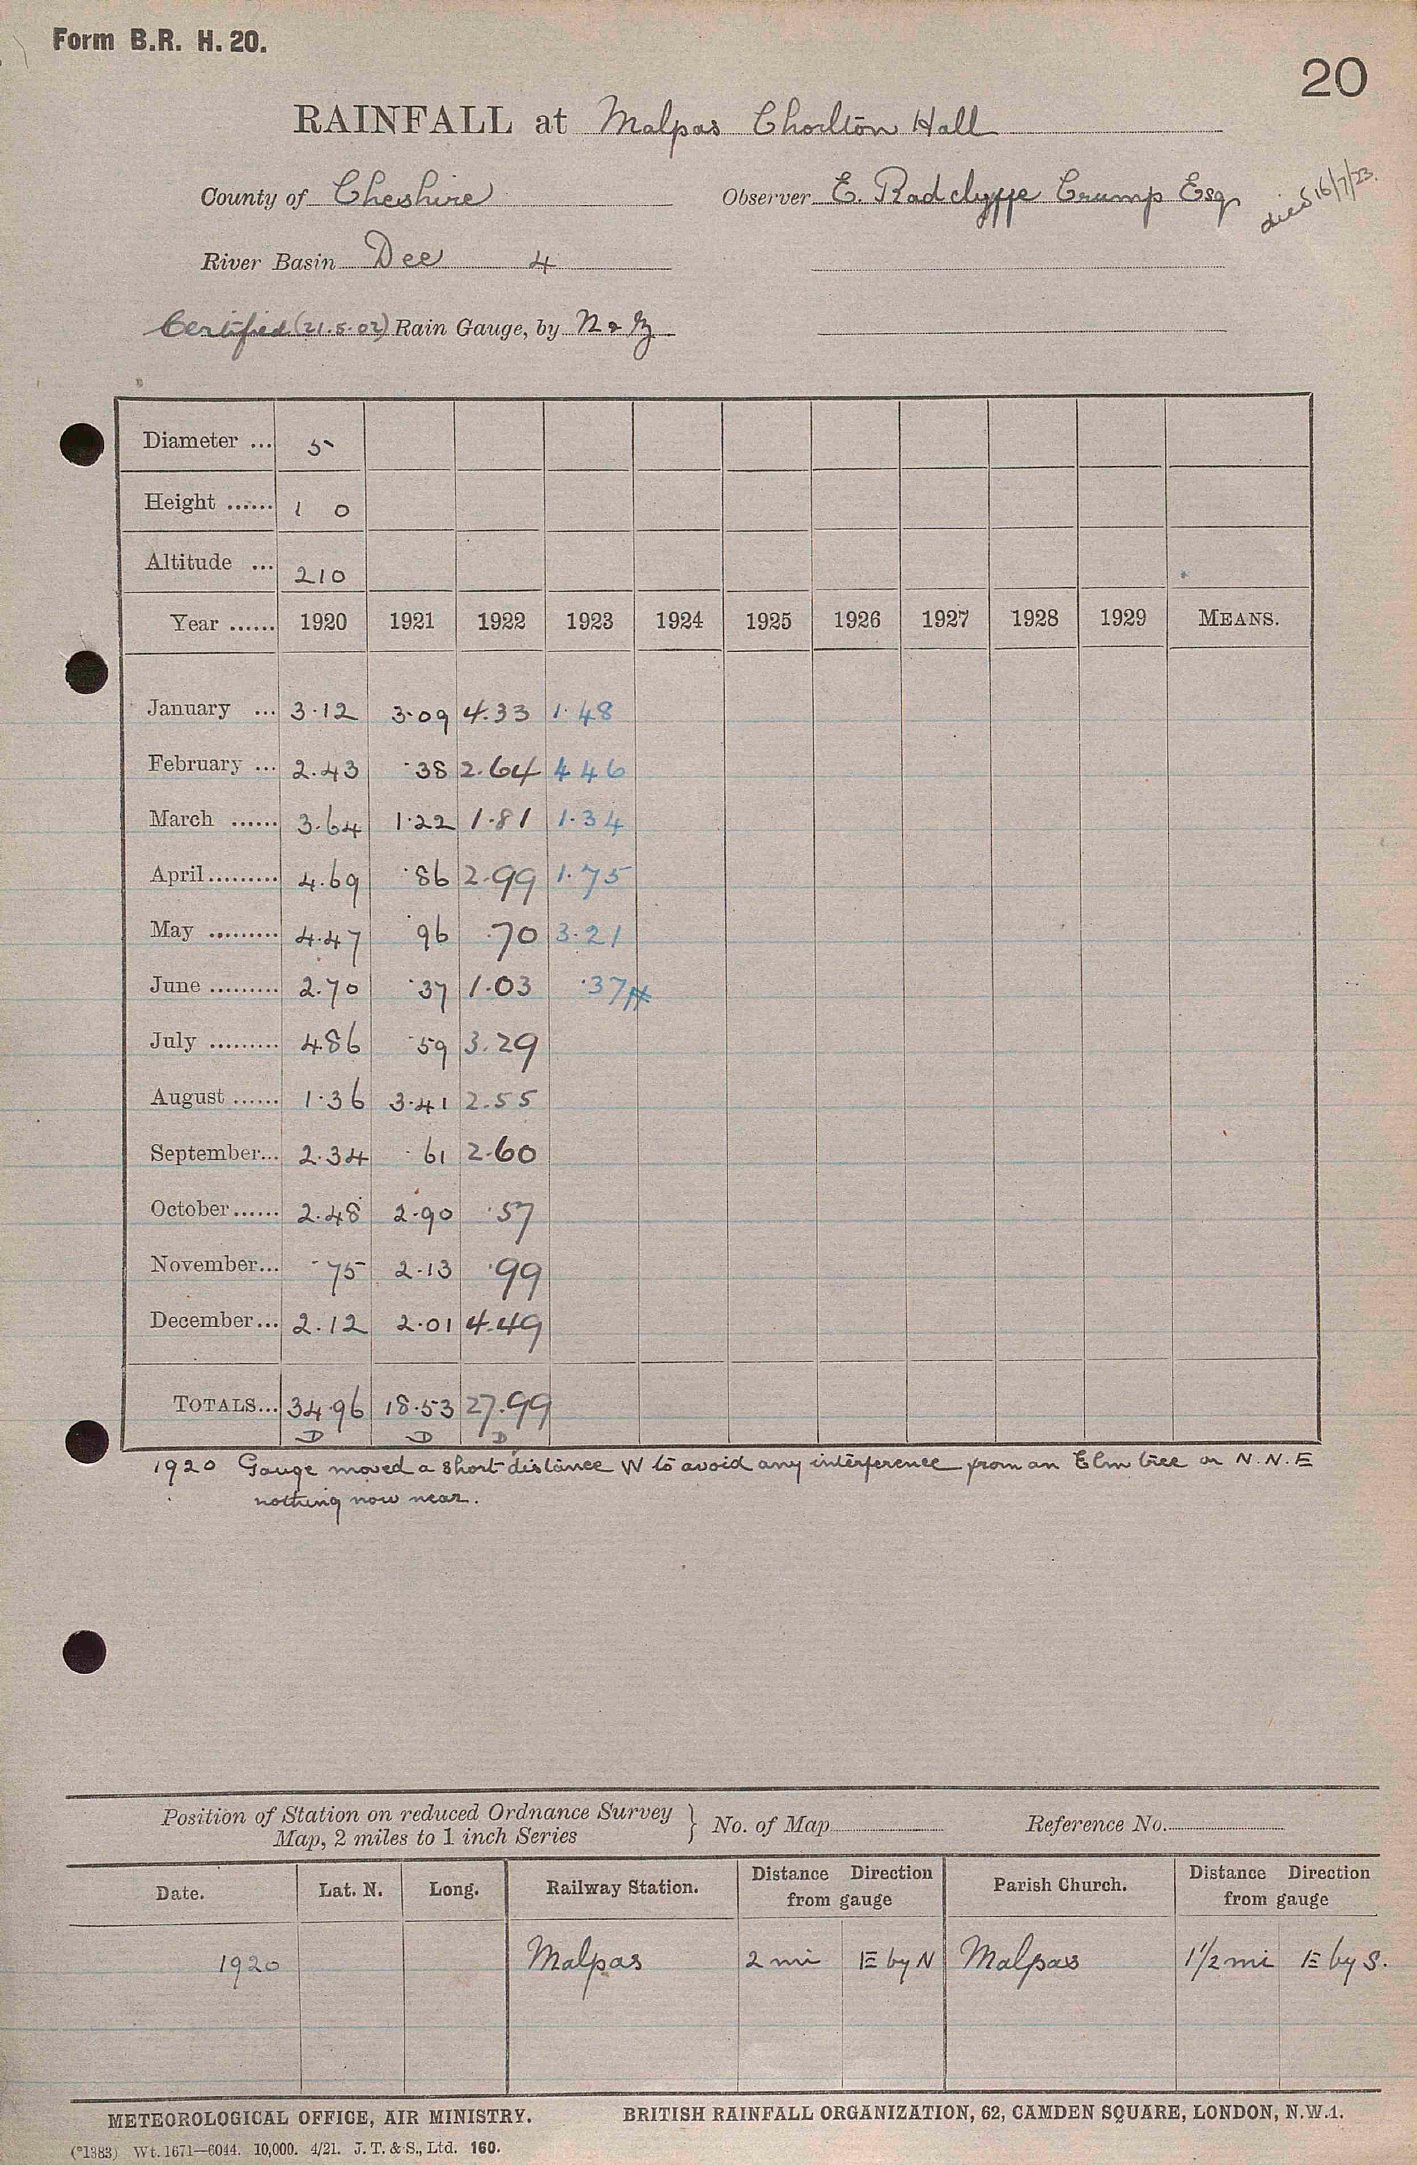 Form B.R. H. 20.
20
RAINFALL at Malpas Chorlton Hall
County of Cheshire Observer E. Radclyffe Crump Esq died 16/7/23.
River Basin Dee 4
Certified (21.5.02) Rain Gauge, by N & Z
Diameter ... 5
Height ...... 1 0
Altitude ... 210
Year ...... 1920 1921 1922 1923 1924 1925 1926 1927 1928 1929 MEANS.
January ... 3.12 3.09 4.33 1.48
February ... 2.43 .38 2.64 4 46
March ...... 3.64 1.22 1.81 1.34
April......... 4.69 .86 2.99 1.75
May ......... 4.47 .96 .70 3.21
June ......... 2.70 .37 1.03 .37
July ......... 4.86 .59 3.29
August ...... 1.36 3.41 2.55
September... 2.34 .61 2.60
October...... 2.48 2.90 .57
November... .75 2.13 .99
December... 2.12 2.01 4.49
TOTALS... 34.96 18.53 27.99
D D D
1920 Gauge moved a short distance W to avoid any interference from an Elm tree on N.N.E
nothing now near.
Position of Station on reduced Ordnance Survey
Map, 2 miles to 1 inch Series } No. of Map Reference No.
Date. Lat. N. Long. Railway Station. Distance Direction from gauge Parish Church. Distance Direction from gauge
1920 Malpas 2 mi E by N Malpas 1½ mi E by S.
METEOROLOGICAL OFFICE, AIR MINISTRY. BRITISH RAINFALL ORGANIZATION, 62, CAMDEN SQUARE, LONDON, N.W.1.
(*1383) Wt. 1671—6044. 10,000. 4/21. J. T. & S., Ltd. 160.